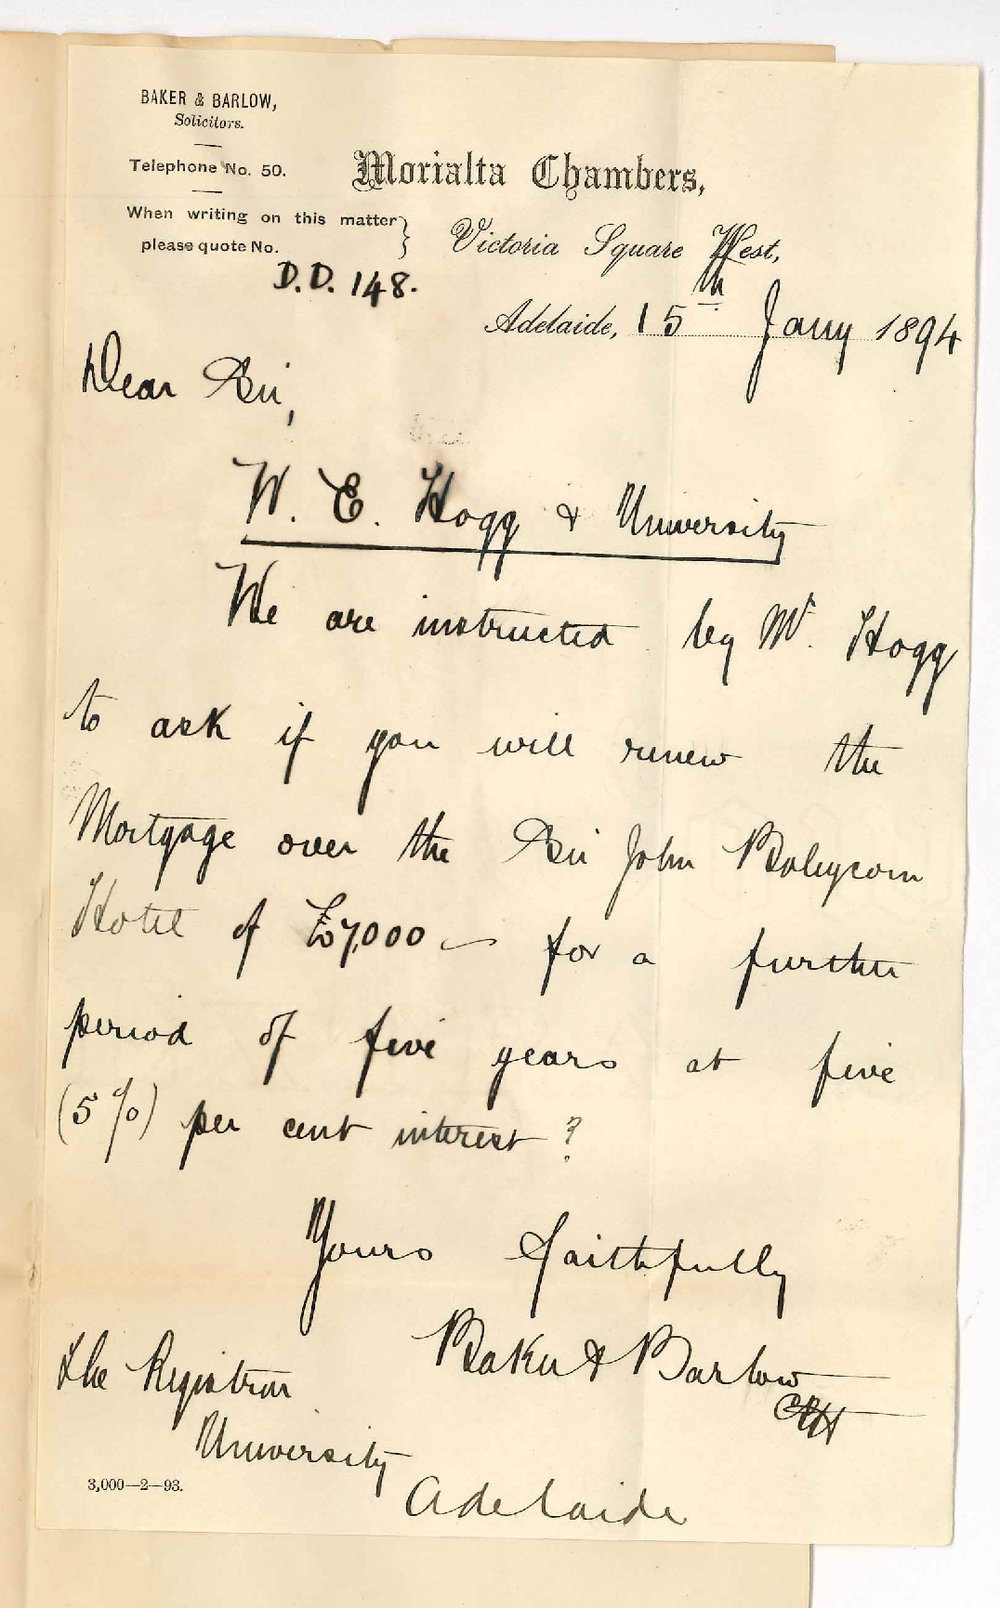 BAKER & BARLOW,
Solicitors.
Telephone No. 50.
When writing on this matter }
please quote No.
D.D. 148.
Morialta Chambers,
Victoria Square West,
Adelaide, 15th Jany 1894
Dear Sir,
W. E. Hogg & University
We are instructed by Mr. Hogg
to ask if you will renew the
Mortgage over the Sir John Baleycorn
Hotel of £7,000 for a further
period of five years at five
(5%) per cent interest?
Yours faithfully
Baker & Barlow
The Registrar
University
Adelaide
3,000—2—93.